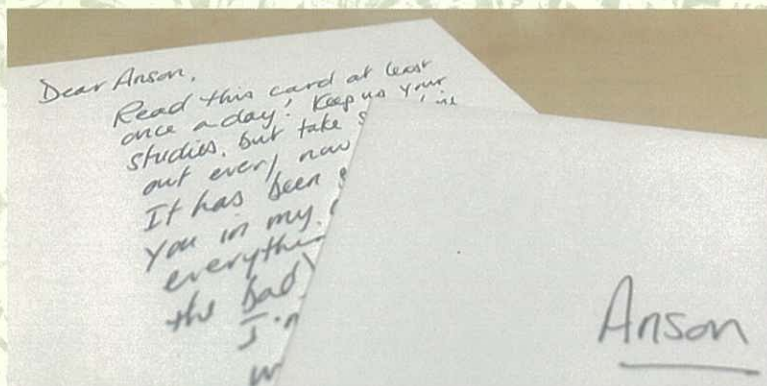 Dear Anson,
Read this card at least
once a day! Keep up your
studies, but take
out every now
It has been
you in my
everything
the bad
Anson